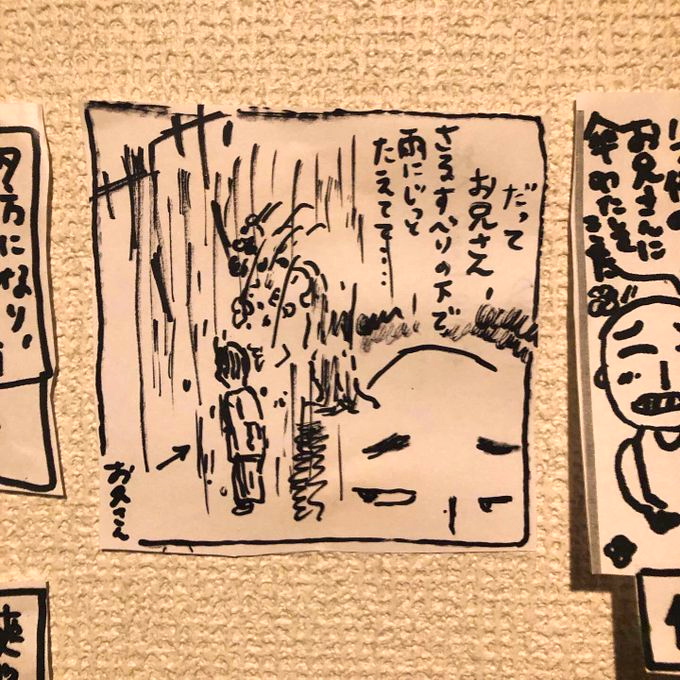 お兄さんに
だって
お兄さん、
さるすべりの下で
雨にじっと
たえてて…
お兄さん
夕方になり、